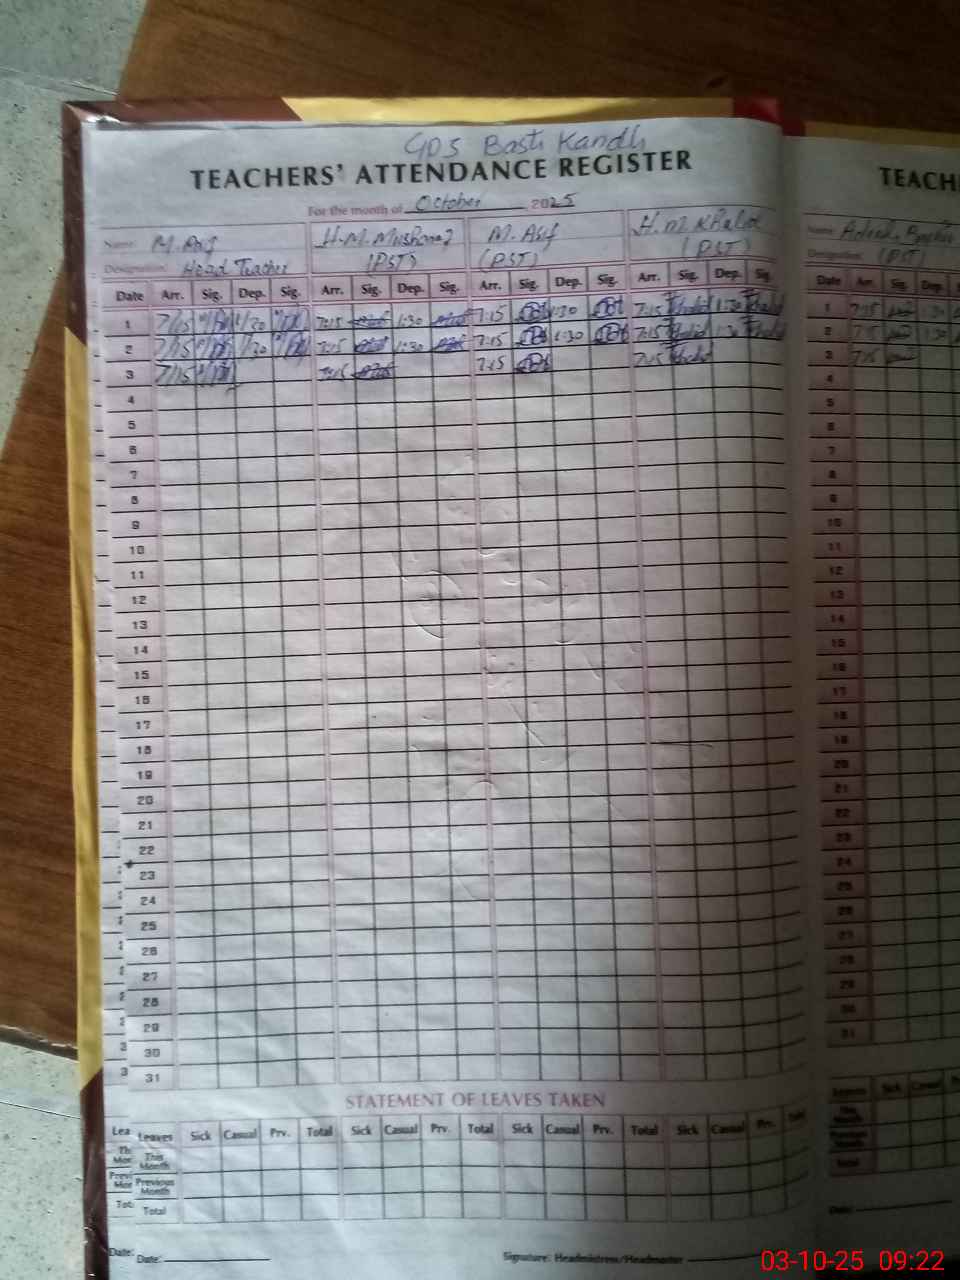 GPS Basti Kandh
TEACHERS' ATTENDANCE REGISTER
For the month of October, 2025
Name: M. Arif H.M. M. Asif H.M Khalid
Designation: Head Teacher (PST) (PST) (PST)
Date Arr. Sig. Dep. Sig. Arr. Sig. Dep. Sig. Arr. Sig. Dep. Sig. Arr. Sig. Dep. Sig.
1 7/15 1/30 7:15 1:30 7:15 1:30 7:15 Khalid 1:30 Khalid
2 7/15 1/30 7:15 1:30 7:15 1:30 7:15 Khalid 1:30 Khalid
3 7/15 7:15 7:15 7:15 Khalid
4
5
6
7
8
9
10
11
12
13
14
15
16
17
18
19
20
21
22
23
24
25
26
27
28
29
30
31
STATEMENT OF LEAVES TAKEN
Leaves Sick Casual Prv. Total Sick Casual Prv. Total Sick Casual Prv. Total Sick Casual Prv. Total
This Month
Previous Month
Total
Date: Signature: Headmistress/Headmaster
TEACH
Name:
Designation: (PST)
Date Arr. Sig. Dep.
1 7:15 1:30
2 7:15 1:30
3 7:15
4
5
6
7
8
9
10
11
12
13
14
15
16
17
18
19
20
21
22
23
24
25
26
27
28
29
30
31
Leaves Sick Casual
Date:
03-10-25 09:22